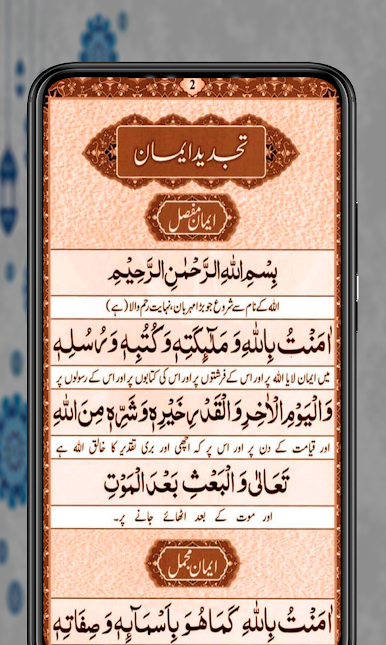 2
تجدید ایمان
ایمان مفصل
بِسْمِ اللهِ الرَّحْمٰنِ الرَّحِيْمِ
اللہ کے نام سے شروع جو بڑا مہربان، نہایت رحم والا (ہے)
اٰمَنْتُ بِاللهِ وَ مَلٰٓئِكَتِهٖ وَ كُتُبِهٖ وَ رُسُلِهٖ
میں ایمان لایا اللہ پر اور اس کے فرشتوں پر اور اس کی کتابوں پر اور اس کے رسولوں پر
وَ الْيَوْمِ الْاٰخِرِ وَ الْقَدْرِ خَيْرِهٖ وَ شَرِّهٖ مِنَ اللهِ
اور قیامت کے دن پر اور اس پر کہ اچھی اور بری تقدیر کا خالق اللہ ہے
تَعَالٰى وَ الْبَعْثِ بَعْدَ الْمَوْتِ
اور موت کے بعد اٹھائے جانے پر۔
ایمان مجمل
اٰمَنْتُ بِاللهِ كَمَا هُوَ بِاَسْمَآئِهٖ وَ صِفَاتِهٖ